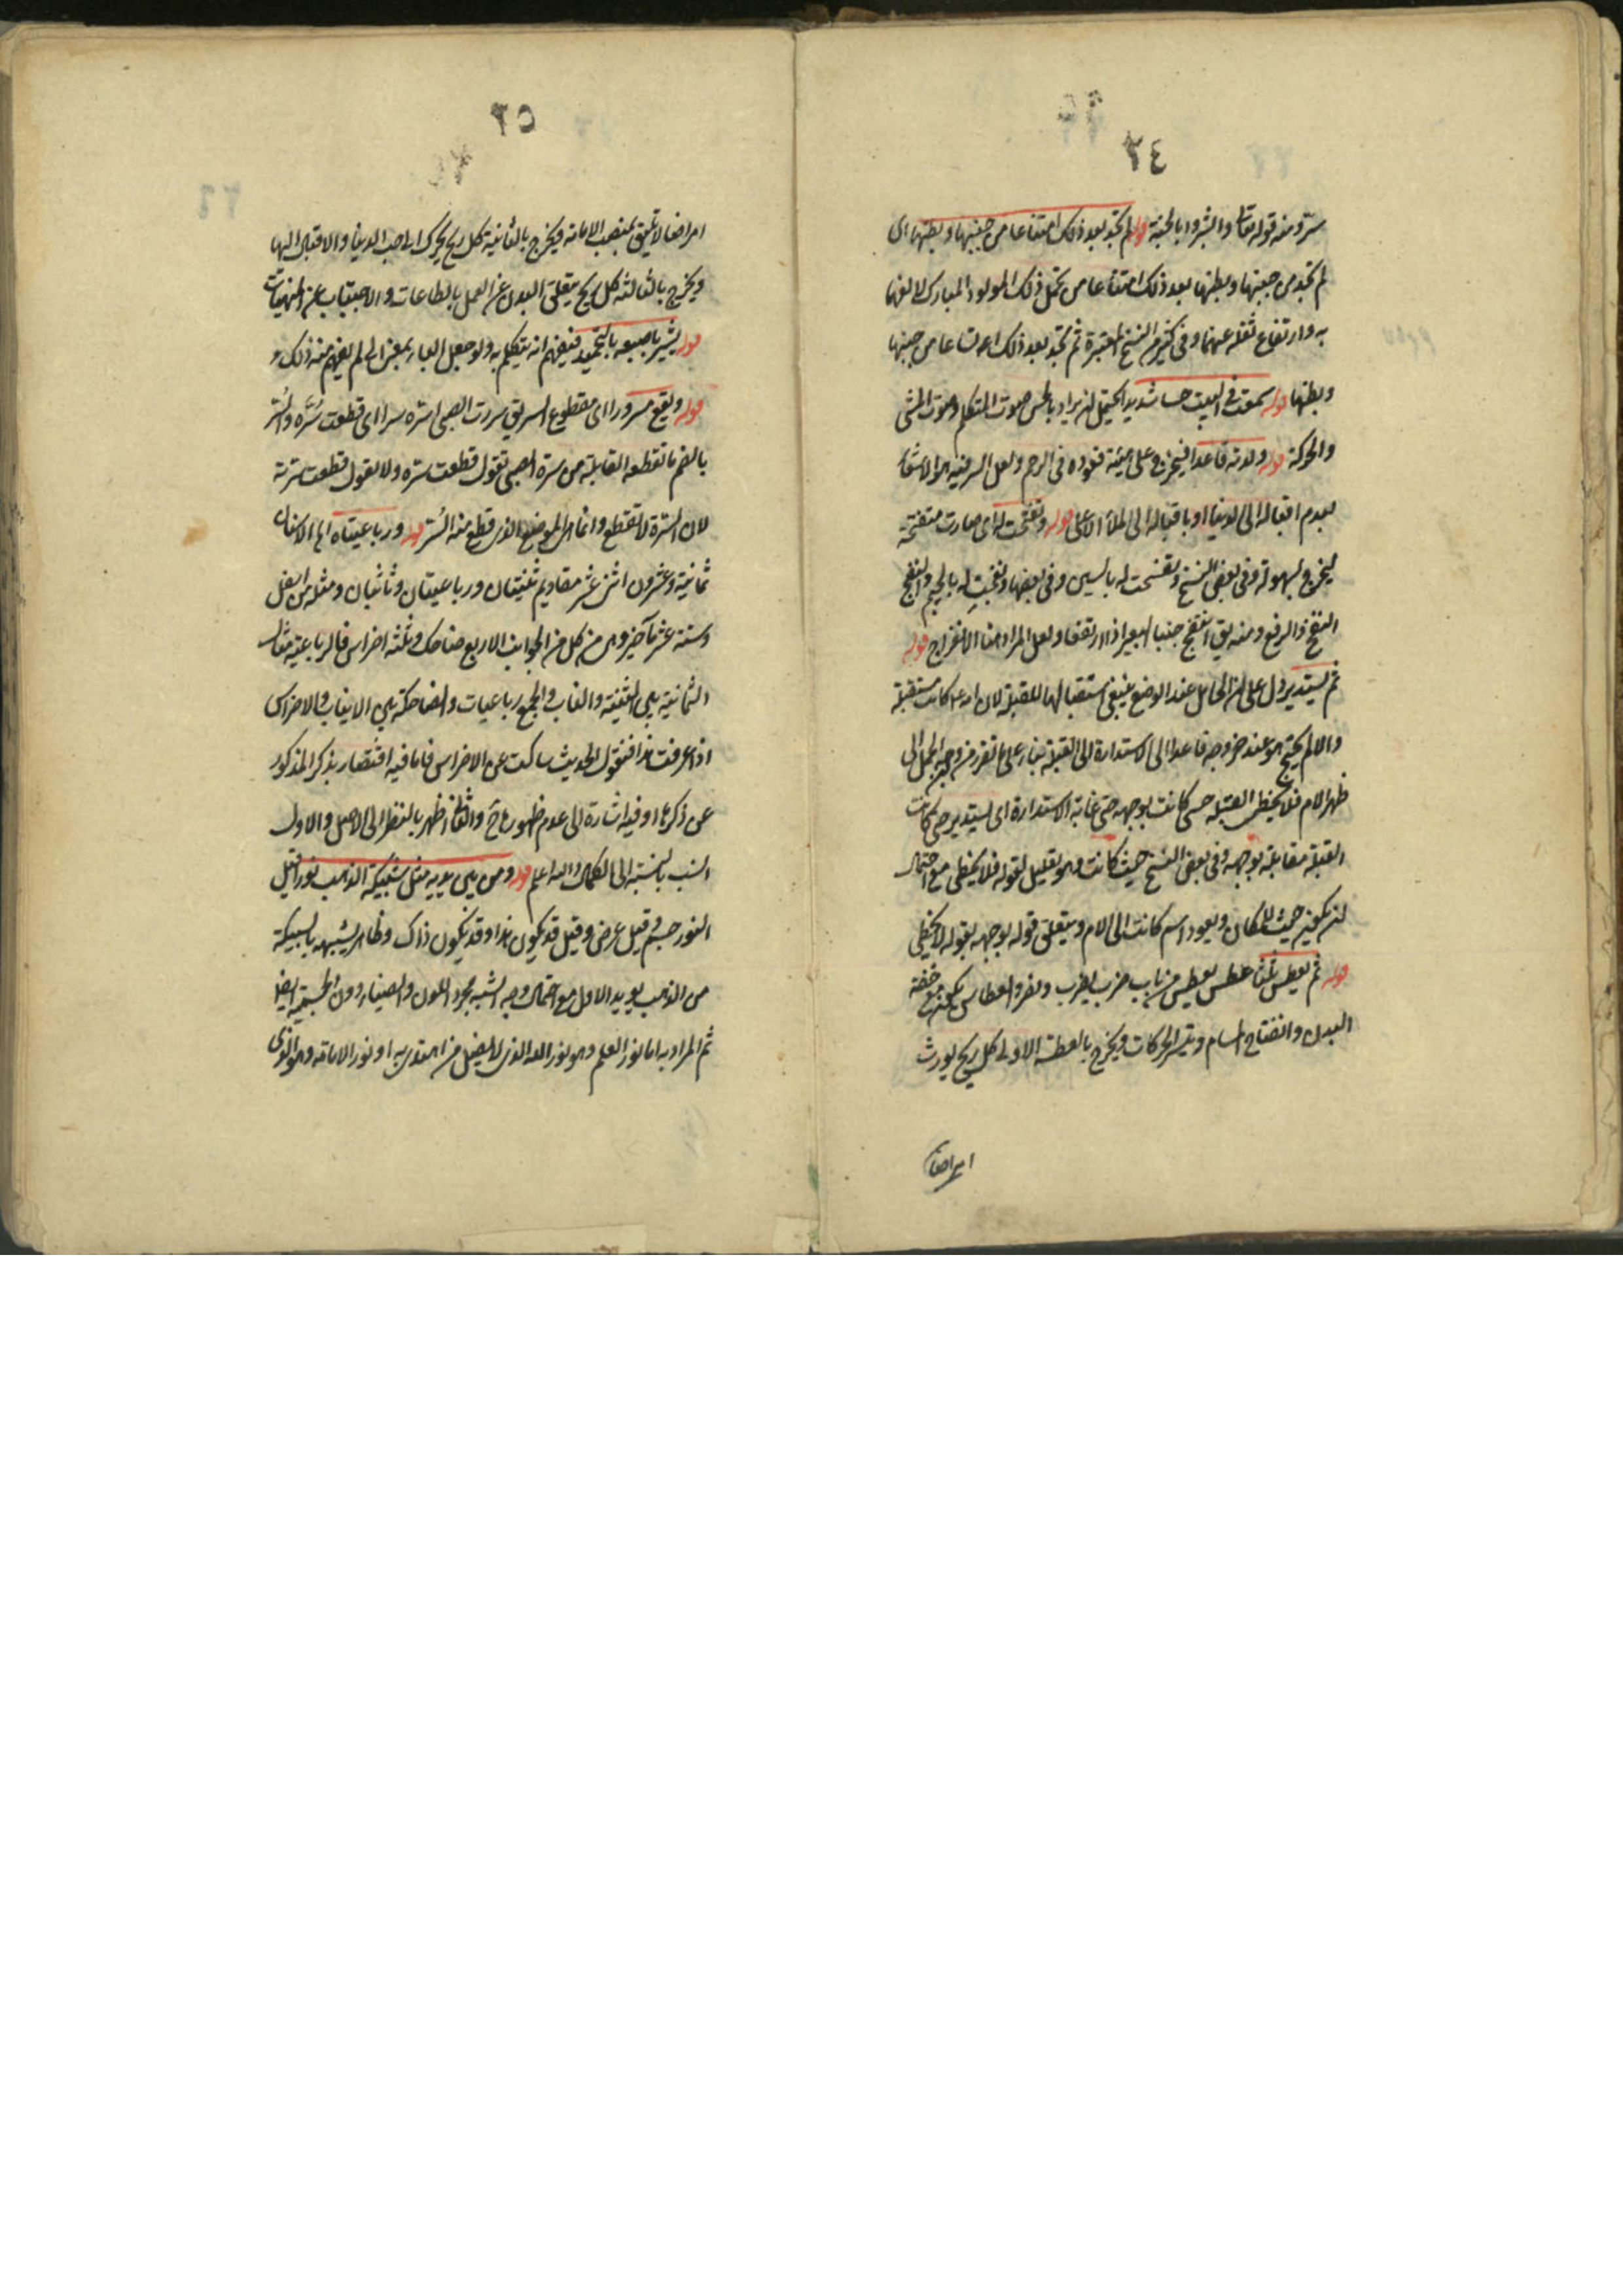 ٢٤
سرّ ومنه قوله تعالى وابشروا بالجنة قوله لم تجد بعد ذلك امتناعا من جنبيها وبطنها اى
لم تجد من جنبيها وبطنها بعد ذلك امتناعا من تحمل ذلك المولود المبارك لالفها
به وارتفاع ثقله عنها وفى كثير من النسخ المعتبرة ثم تجد بعد ذلك اتساعا من جنبيها
وبطنها قوله سمعت فى البيت حسا شديدا يحتمل ان يراد بالحس صوت المتكلم وصوت المشى
والحركة قوله ولدته قاعدا فيخرج على هيئة قعوده فى الرحم ولعل السر فيه هو الاشعار
بعدم اقباله الى الدنيا او باقباله الى الملأ الاعلى قوله وتفتحت له اى صارت متفتحة
ليخرج بسهولة وفى بعض النسخ وتفسحت له بالسين وفى بعضها ونفجت له بالجيم والنفج
النفخ والرفع ومنه يق انتفج جنبا البعير اذا ارتفعا ولعل المراد هنا الانفراج قوله
ثم يستدير دل على ان الحامل عند الوضع ينبغى استقبالها للقبلة لان امه كانت مستقبلة
والا لم يحتج هو عند خروجه قاعدا الى الاستدارة الى القبلة بناء على ما تقرر من وجه الحمل الى
ظهر الام فلا يخطى القبلة حتى كانت بوجهه حتى غاية الاستدارة اى يستدير حتى كانت
القبلة مقابلة بوجهه وفى بعض النسخ حيث كانت وهو تعليل لقوله فلا يخطى مع احتمال
ان يكون حيث للمكان ويعود اسم كانت الى الام ويتعلق قوله بوجهه بقوله لا يخطى
قوله ثم يعطس ثلثا عطس يعطس من باب ضرب يضرب ونصر والعطاس يكون مع خفة
البدن وانفتاح المسام وتيسر الحركات ويخرج بالعطسة الاولى كل ريح يورث
امراضا
٢٥
امراضا لا تليق بمنصب الامامة ويخرج بالثانية كل ريح يحرك الى حب الدنيا والاقبال اليها
ويخرج بالثالثة كل ريح يثقل البدن عن العمل بالطاعات والاجتناب عن المنهيات
قوله يشير باصبعه بالتحميد فيفهم انه يتكلم به ولو جعل الباء بمعنى الى لم يفهم منه ذلك
قوله ويقع مسرورا اى مقطوع السر يق سررت الصبى اسره سرا اى قطعت سُرَّه والسُّر
بالضم ما تقطعه القابلة من سرة الصبى تقول قطعت سره ولا تقول قطعت سرته
لان السرة لا تقطع وانما هى الموضع الذى قطع منه السُّر قوله ورباعيتاه اه الاسنان
ثمانية وعشرون اثنى عشر مقاديم ثنيتان ورباعيتان ونابان ومثلها من اسفل
وستة عشر مآخير وهى من كل من الجوانب الاربع ضاحك وثلثة اضراس فالرباعية مثال
الثمانية بين الثنية والناب والجمع رباعيات والضاحكة بين الانياب والاضراس
اذا عرفت هذا فنقول الحديث ساكت عن الاضراس فاما فيه اقتصار بذكر المذكور
عن ذكرها او فيه اشارة الى عدم ظهورها ح والثانى اظهر بالنظر الى الاصل والاول
انسب بالنسبة الى الكمال والله اعلم قوله ومن بين يديه مثل سبيكة الذهب نور قيل
النور جسم وقيل عرض وقيل قد يكون هذا وقد يكون ذاك وظاهر تشبيهه بالسبيكة
من الذهب يويد الاول مع احتمال وجه الشبه مجرد اللون والصفاء دون الجسمية ايضا
ثم المراد به اما نور العلم وهو نور الله الذى لا يضل من اهتدى به او نور الامامة وهو الذى